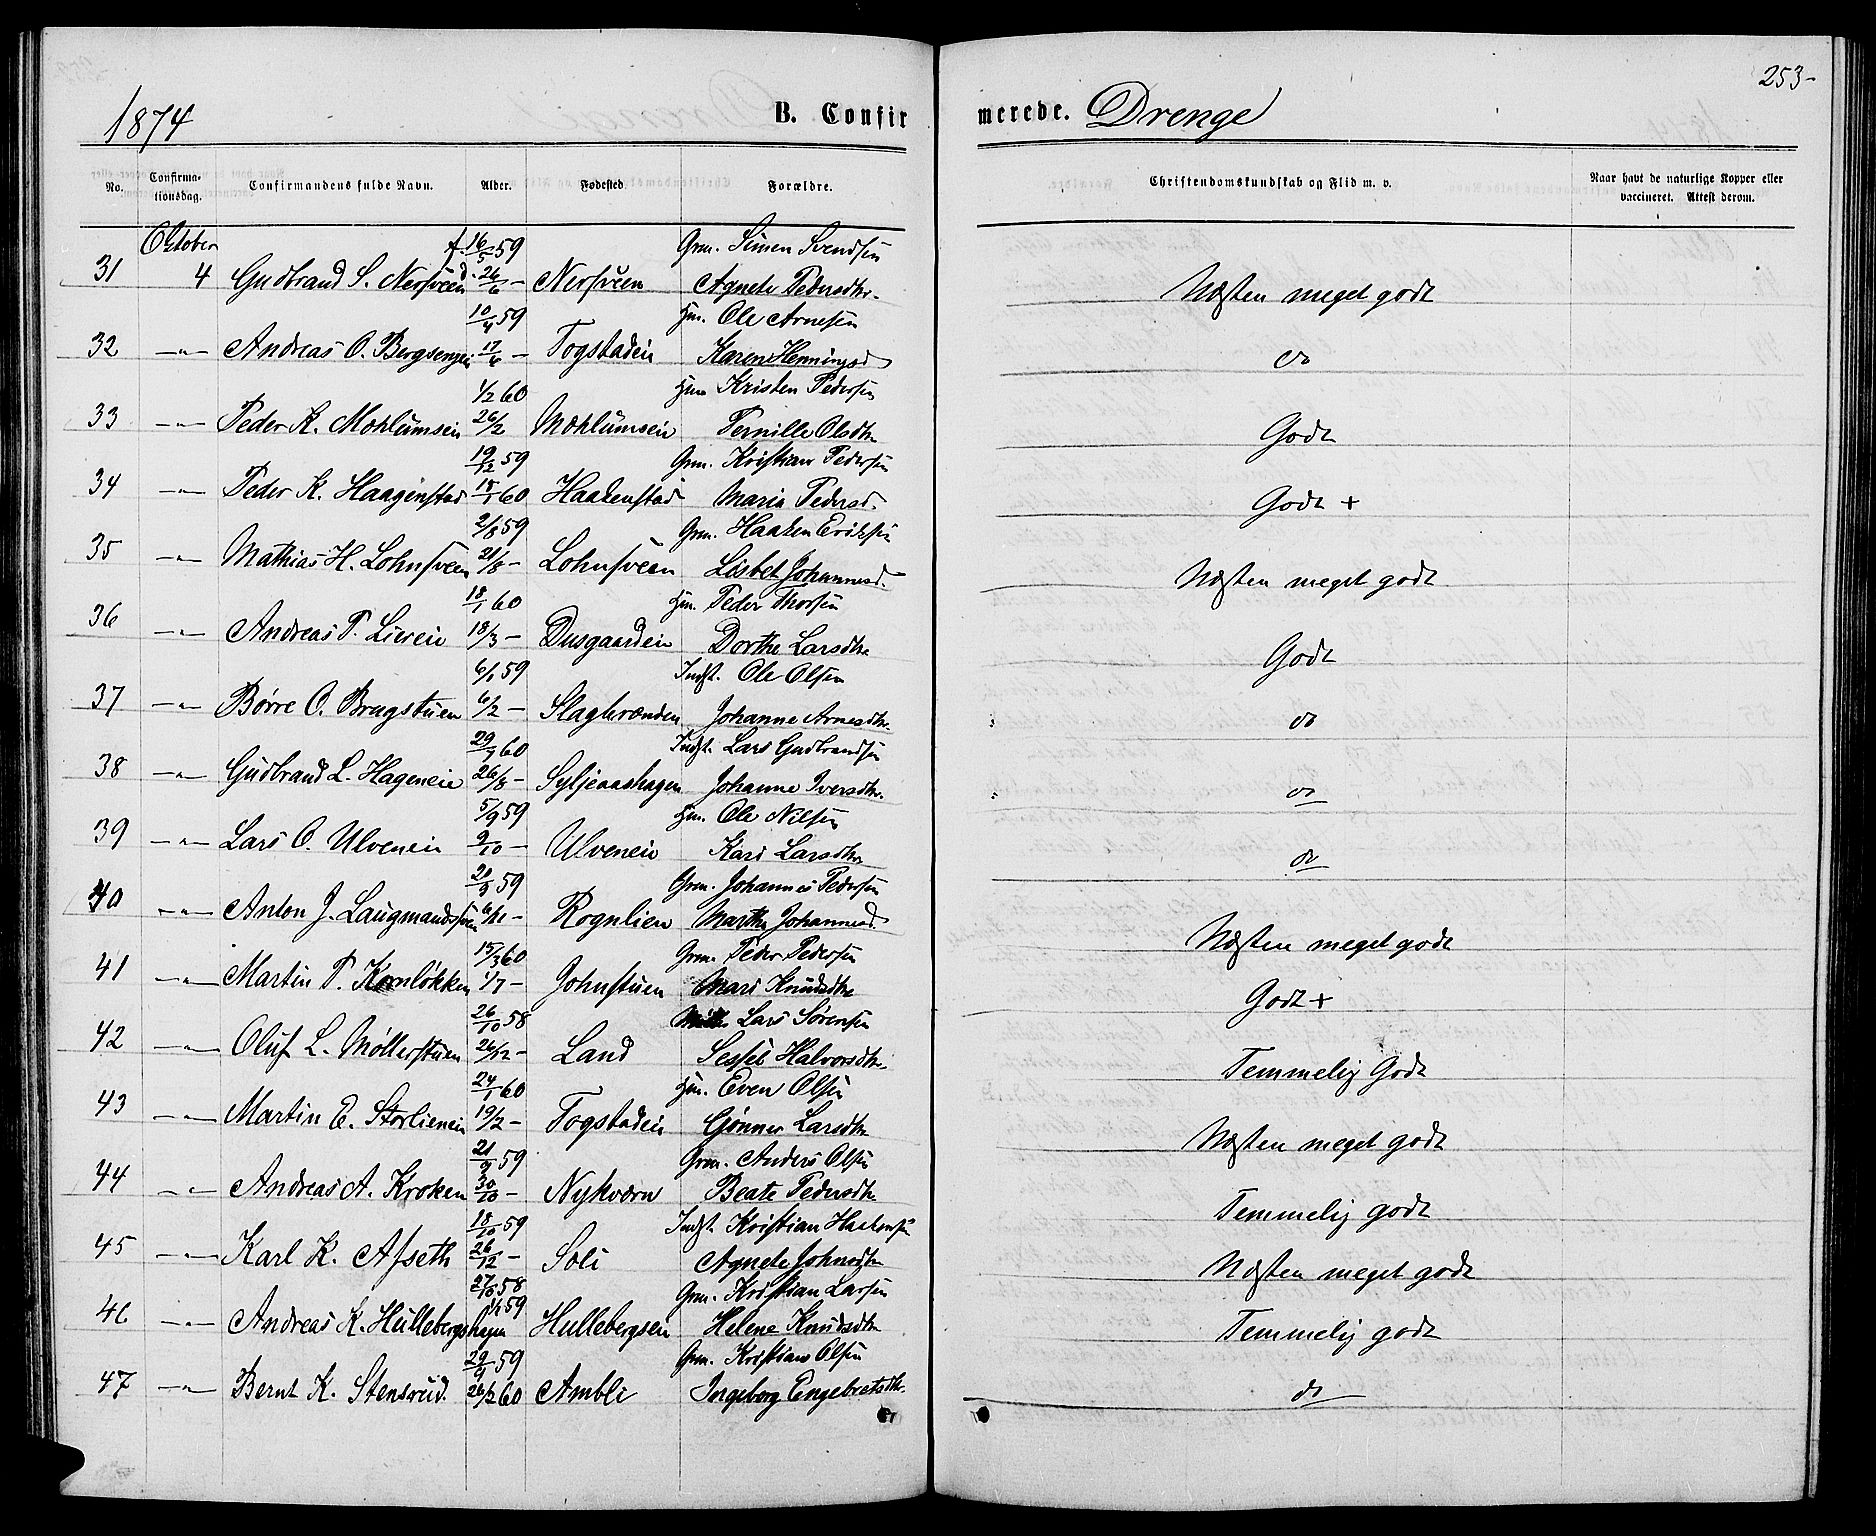 253-
1874 B. Confirmerede. Drenge
No. Confirmationsdag. Confirmandens fulde Navn. Alder. Fødested. Forældre. Christendomskundskab og Flid m. v. Naar havt de naturlige Kopper eller vaccineret. Attest derom.
Oktober f. 16/5 59 Grm. Simen Svendsen
31 4 Gudbrand S. Nersveen d. 26/6 - Nersveen Agnete Pedersdtr. Næsten meget godt
10/4 59 Hm. Ole Arnesen
32 -"- Andreas O. Bergsengen 17/4 - Togstadeie Karen Henningsd. do
1/2 60 Hm Kristen Pedersen
33 -"- Peder K. Mæhlumseie 26/2 Mæhlumseie Pernille Olsdtr Godt
19/12 59 Grm. Kristian Pedersen
34 -"- Peder K. Haagenstad 15/1 60 Haakenstad Maria Pedersd. Godt +
2/8 59 Grm. Haaken Eriksen
35 -"- Mathias H. Lohnsveen 21/8 - Lohnsveen Lisbet Johannesd. Næsten meget godt
18/1 60 Hm. Peder Thorsen
36 -"- Andreas P. Liereie 18/3 - Dusgaardeie Dorthe Larsdtr Godt
6/1 59 Indst. Ole Olsen
37 -"- Børre O. Bragstuen 6/2 - Slagbrænden Johanne Arnesdtr. do
29/7 60 Indst. Lars Gudbrandsen
38 -"- Gudbrand L. Hageneie 26/8 - Syljeaashagen Johanne Iversdtr. do
5/9 59 Hm. Ole Nilsen
39 -"- Lars O. Ulveneie 9/10 - Ulveneie Kari Larsdtr do
20/9 59 Grm. Johannes Pedersen
40 -"- Anton J. Laugmandsveen 6/11 - Rognlien Marthe Johannesd. Næsten meget godt
15/3 60 Grm. Peder Pedersen
41 -"- Martin P. Kornløkken 1/7 - Johnstuen Mari Knudsdtr Godt +
26/10 58 Lars Sørensen
42 -"- Oluf L. Møllerstuen 26/12 - Land Sessel Halvorsdtr. Temmelig Godt
24/1 60 Hm. Even Olsen
43 -"- Martin E. Storlieneie 19/2 - Togstadeie Gønner Larsdtr Næsten meget godt
21/9 59 Grm. Anders Olsen
44 -"- Andreas A. Kroken 30/10 - Nykværn Beate Pedersdtr Temmelig godt
18/10 59 Indst. Kristian Haakensen
45 -"- Karl K. Afseth 26/12 - Soli Agnete Johnsdtr Næsten meget godt
27/10 58 Grm. Kristian Larsen
46 -"- Andreas K. Hullebergshagen 1/1 59 Hullebergseie Helene Knudsdtr Temmelig godt
29/9 59 Grm. Kristian Olsen
47 -"- Bernt K. Stensrud. 26/2 60 Ambli Ingeborg Engebretsdtr. do